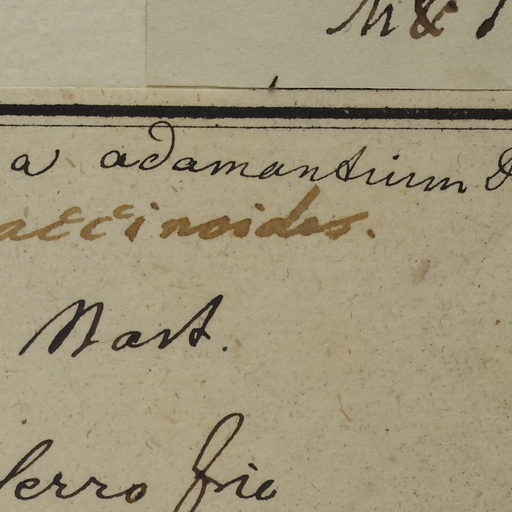 M &
a adamantium D
accinoides.
Mart.
Serro frio